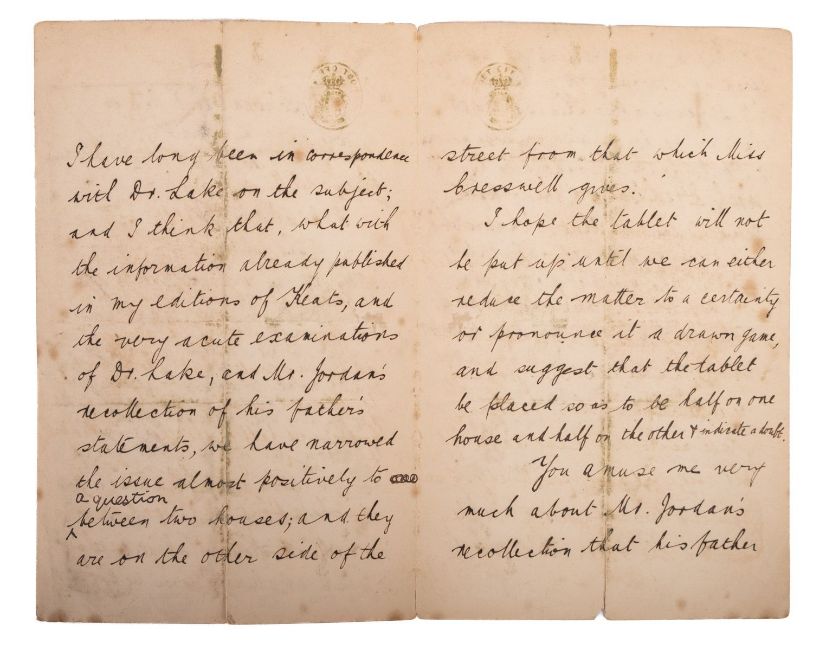 I have long been in correspondence
with Dr. Lake on the subject;
and I think that, what with
the information already published
in my editions of Keats, and
the very acute examinations
of Dr. Lake, and Mr. Jordan's
recollection of his father's
statements, we have narrowed
the issue almost positively to
a question
between two houses; and they
are on the other side of the
street from that which Miss
Cresswell gives.
I hope the tablet will not
be put up until we can either
reduce the matter to a certainty
or pronounce it a drawn game,
and suggest that the tablet
be placed so as to be half on one
house and half on the other & indicate a doubt.
You amuse me very
much about Mr. Jordan's
recollection that his father